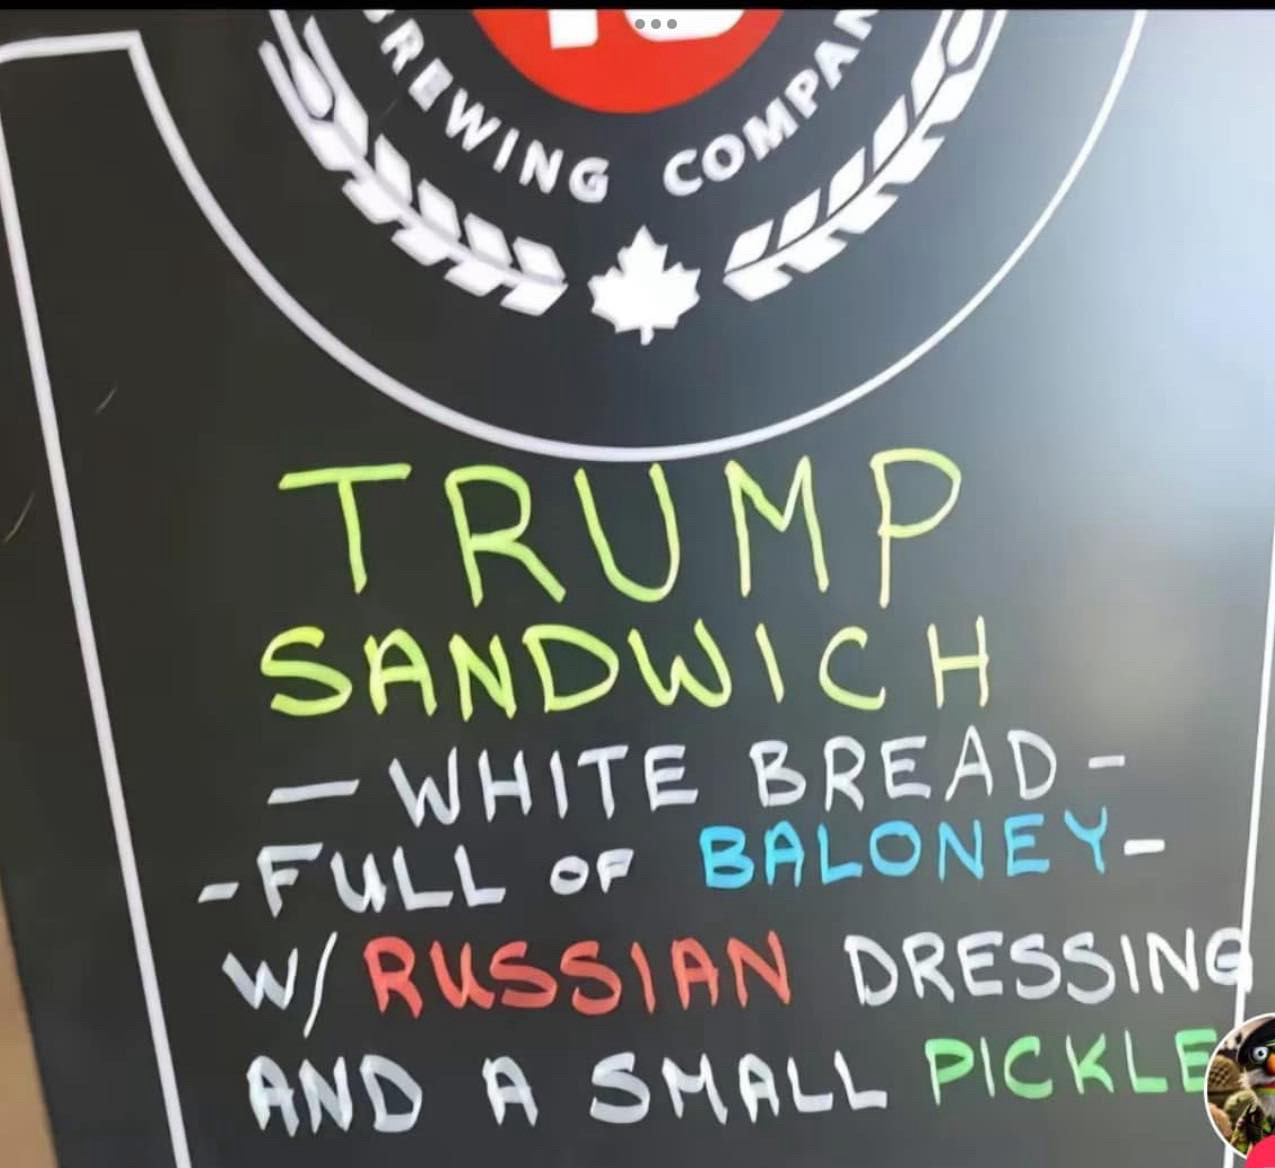 BREWING COMPANY
TRUMP
SANDWICH
— WHITE BREAD -
- FULL OF BALONEY -
W/ RUSSIAN DRESSING
AND A SMALL PICKLE